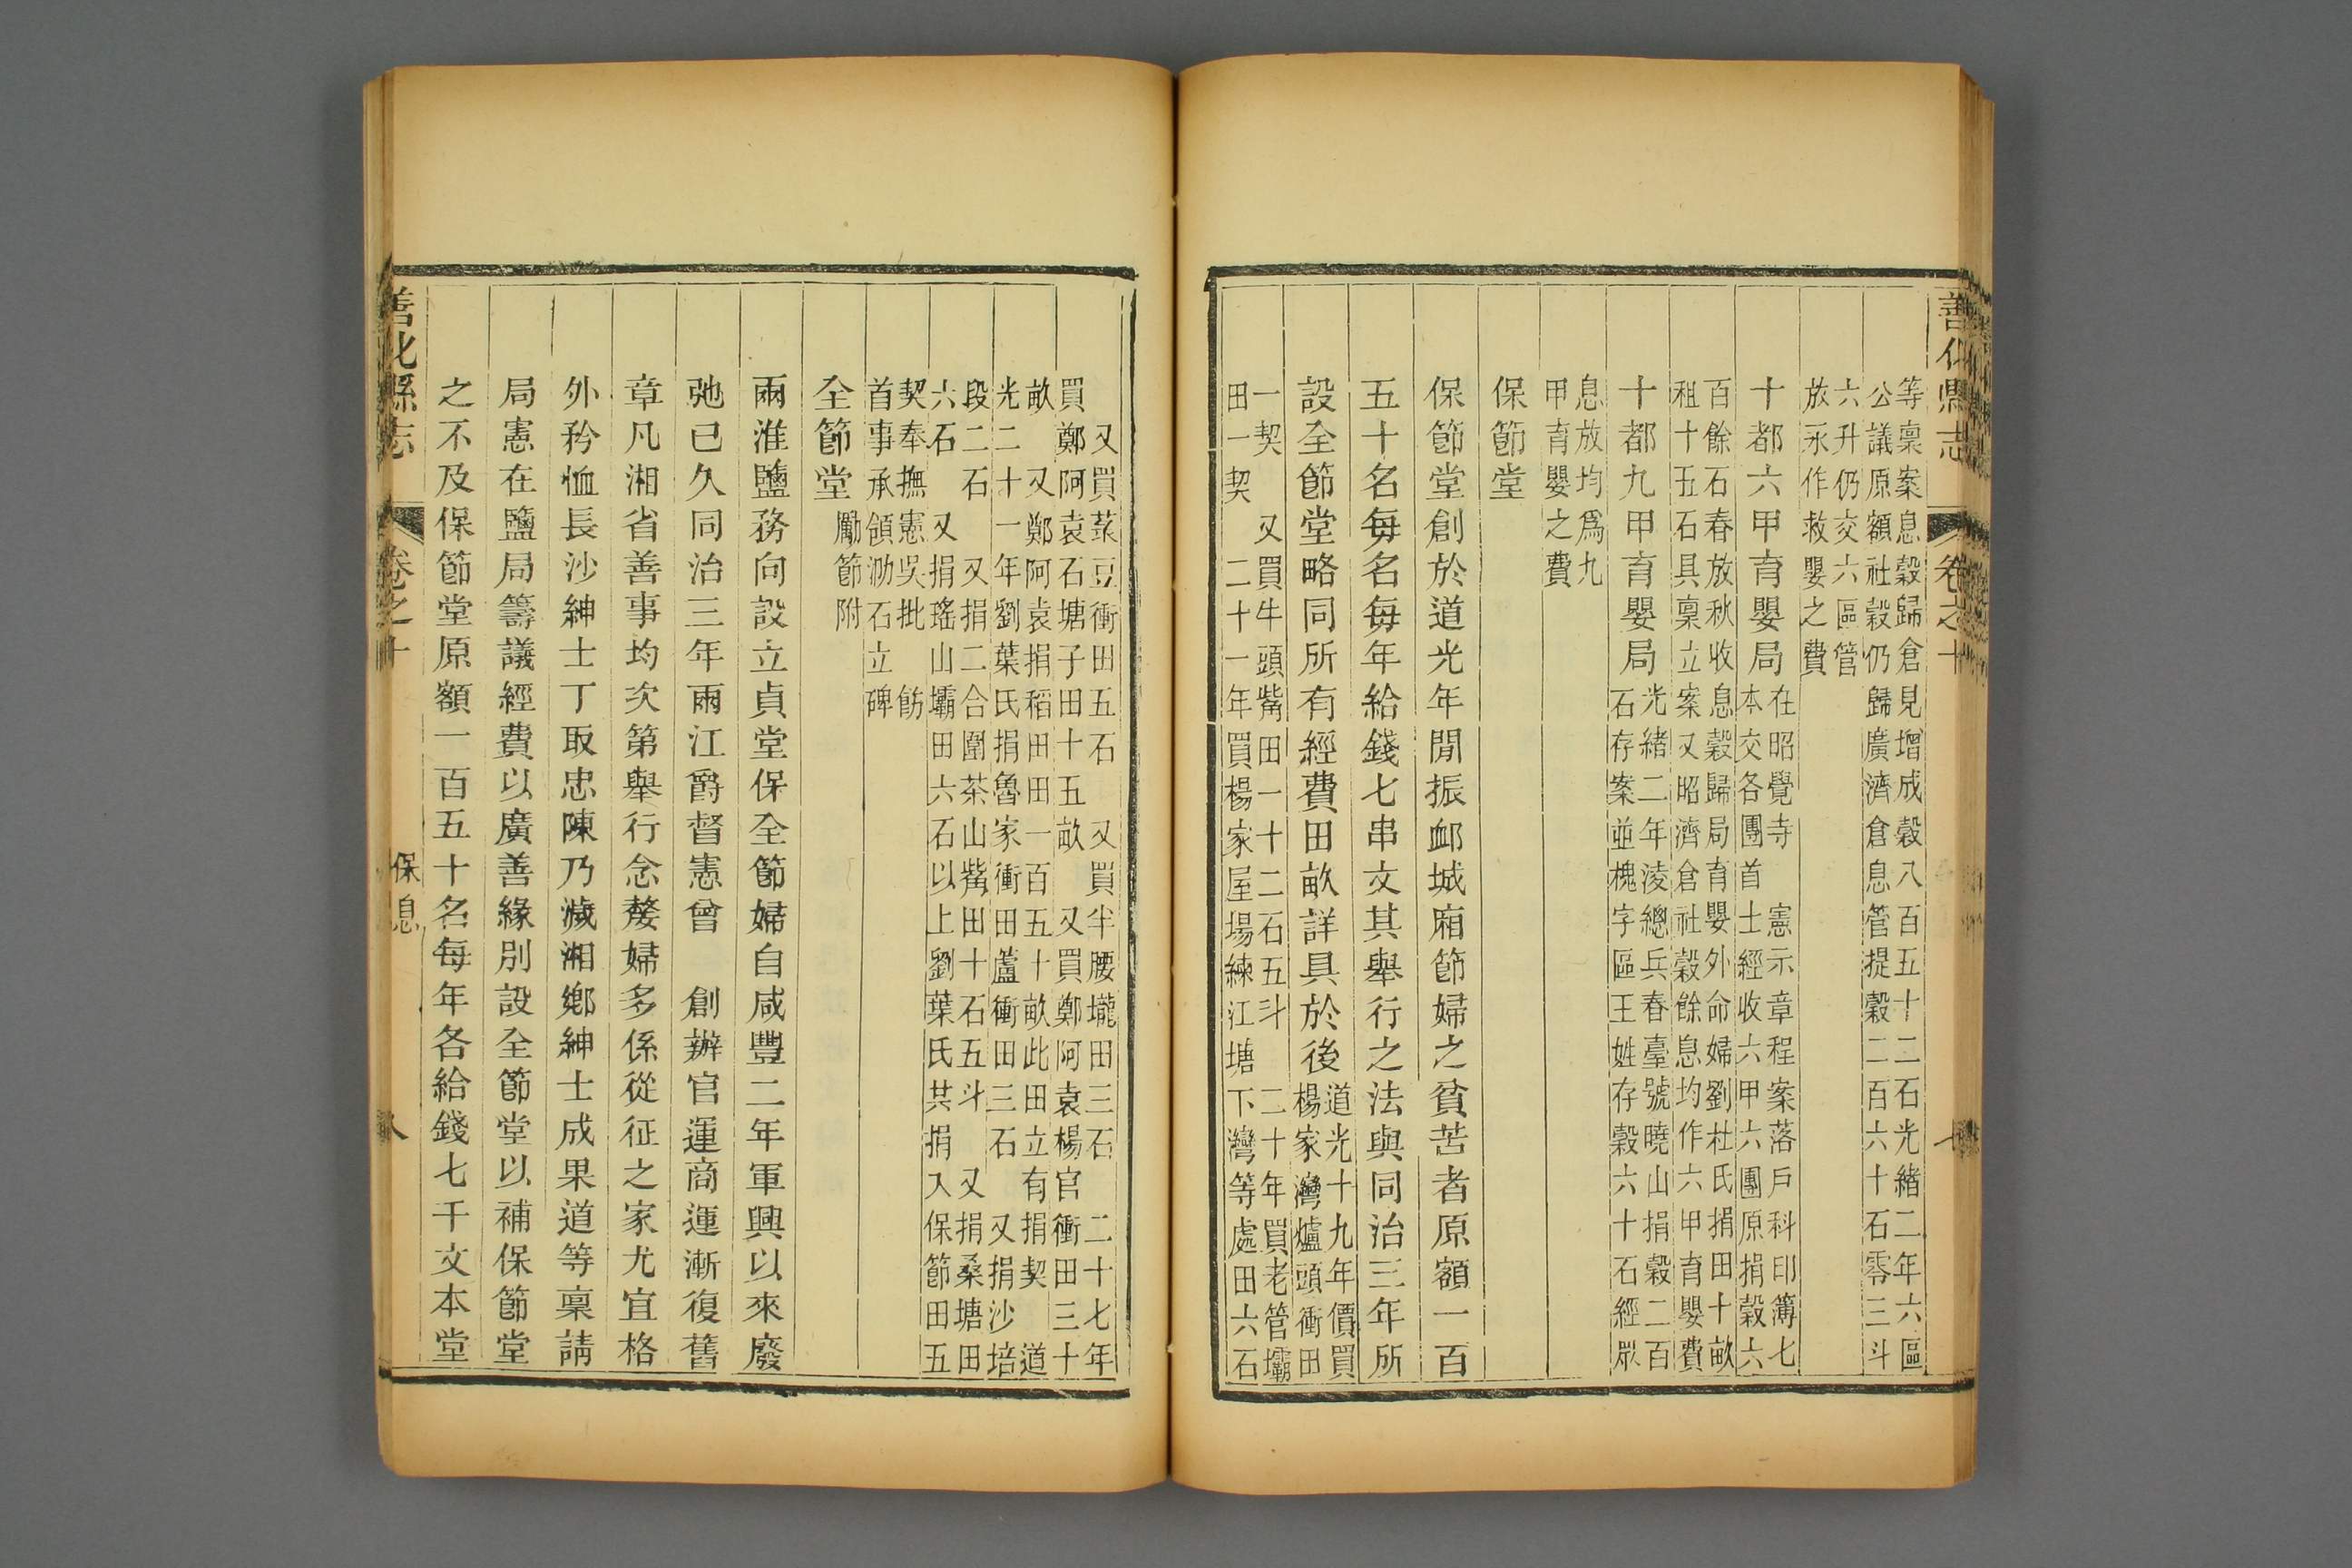 善化縣志 卷之十 七
等稟案息穀歸倉見增成穀八百五十二石光緒二年六區
公議原額社穀仍歸廣濟倉息管提穀二百六十石零三斗
六升仍交六區管
放永作救嬰之費
十都六甲育嬰局
在昭覺寺 憲示章程案落戶科印簿七
本交各團首士經收六甲六團原捐穀六
百餘石春放秋收息穀歸局育嬰外命婦劉杜氏捐田十畝
租十五石具稟立案又昭濟倉社穀餘息均作六甲育嬰費
十都九甲育嬰局
光緒二年淩總兵春臺號曉山捐穀二百
石存案並槐字區王姓存穀六十石經眾
息放均爲九
甲育嬰之費
保節堂
保節堂創於道光年閒振䘏城廂節婦之貧苦者原額一百
五十名每名每年給錢七串文其舉行之法與同治三年所
設全節堂略同所有經費田畝詳具於後
道光十九年價買
楊家灣爐頭衝田
一契 又買牛頭觜田一十二石五斗 二十年買老管壩
田一契 二十一年買楊家屋場練江塘下灣等處田六石
又買菉豆衝田五石 又買半腰壠田三石 二十七年
買鄭阿袁石塘子田十五畝 又買鄭阿袁楊官衝田三十
畝 又鄭阿袁捐稻田田一百五十畝此田立有捐契 道
光二十一年劉葉氏捐魯家衝田蘆衝田三石 又捐沙培
段二石 又捐二合圍茶山觜田十石五斗 又捐桑塘田
六石 又捐瑤山壩田六石以上劉葉氏共捐入保節田五
契奉撫憲吳批 飭
首事承領泐石立碑
全節堂 勵節附
兩淮鹽務向設立貞堂保全節婦自咸豐二年軍興以來廢
弛已久同治三年兩江爵督憲曾 創辦官運商運漸復舊
章凡湘省善事均次第舉行念嫠婦多係從征之家尤宜格
外矜恤長沙紳士丁取忠陳乃澫湘鄉紳士成果道等稟請
局憲在鹽局籌議經費以廣善緣別設全節堂以補保節堂
之不及保節堂原額一百五十名每年各給錢七千文本堂
善化縣志 卷之十 保息 八